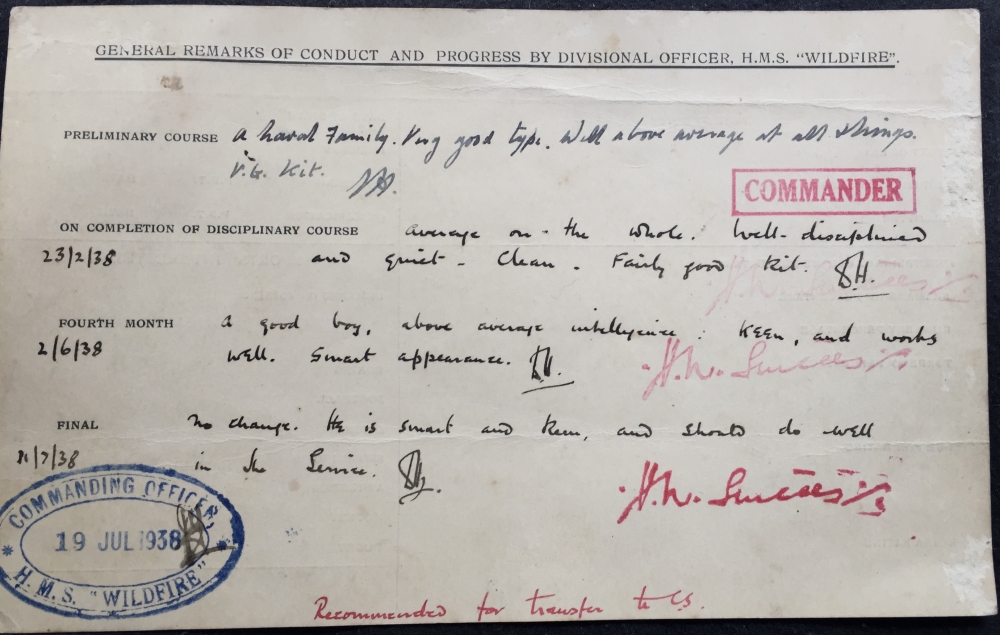 GENERAL REMARKS OF CONDUCT AND PROGRESS BY DIVISIONAL OFFICER, H.M.S. "WILDFIRE".
PRELIMINARY COURSE A Naval Family. Very good type. Well above average at all things.
V.G. Kit.
COMMANDER
ON COMPLETION OF DISCIPLINARY COURSE average on the whole. Well-disciplined
23/2/38 and quiet - Clean. Fairly good kit.
FOURTH MONTH A good boy, above average intelligence: Keen, and works
2/6/38 well. Smart appearance.
FINAL No change. He is smart and keen, and should do well
/7/38 in the Service.
COMMANDING OFFICER
19 JUL 1938
H.M.S. "WILDFIRE"
Recommended for transfer to